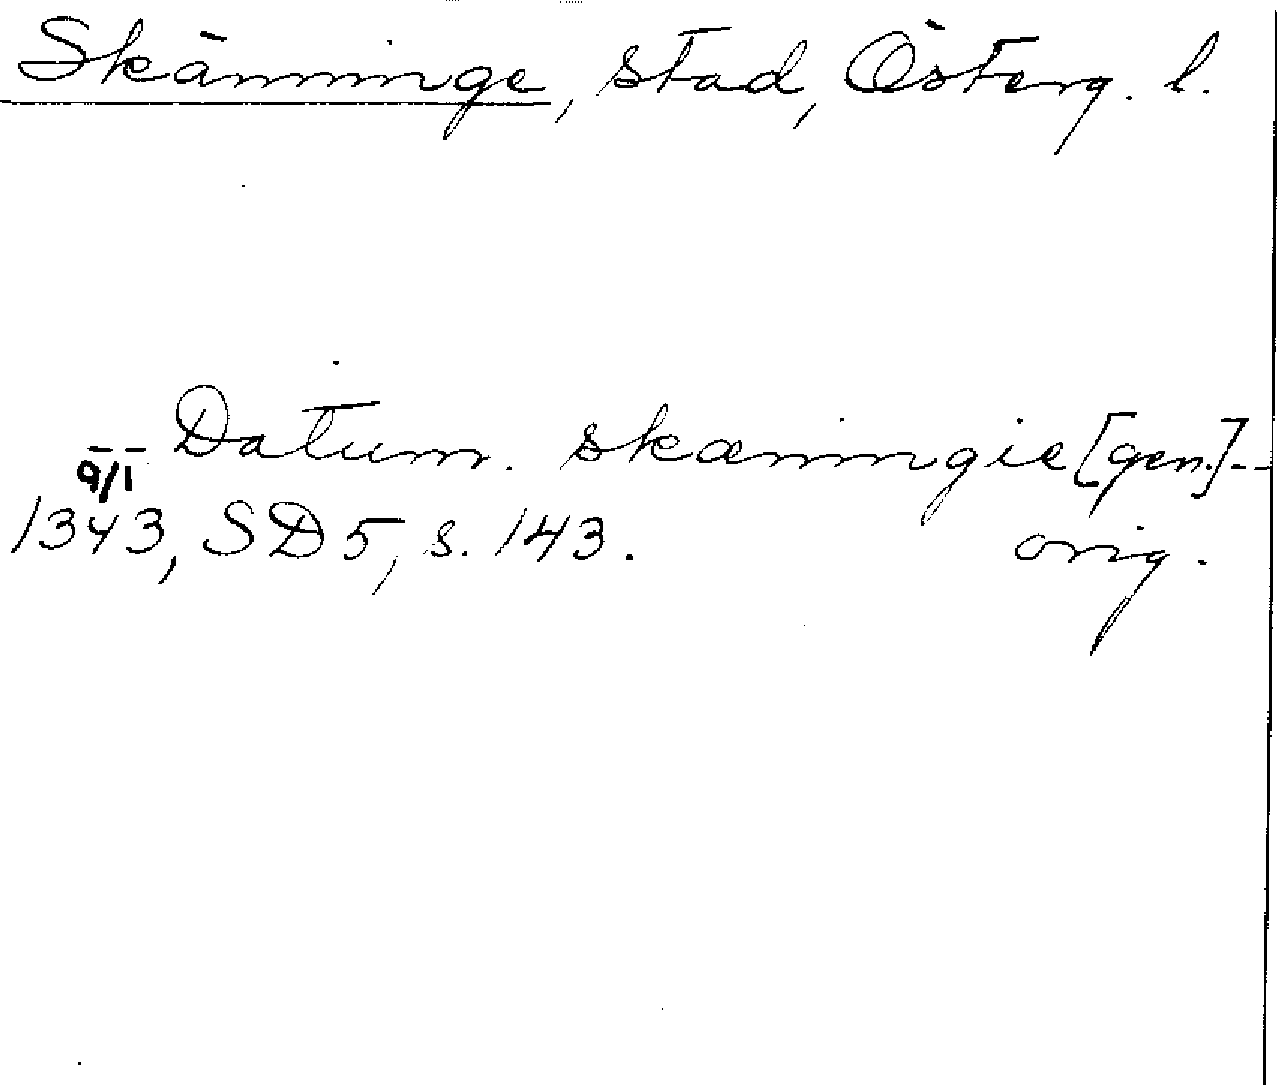 Skänninge, stad, Österg. l.
Datum. skæningie [gen.]--
9/1 1343, SD 5, s. 143. orig.